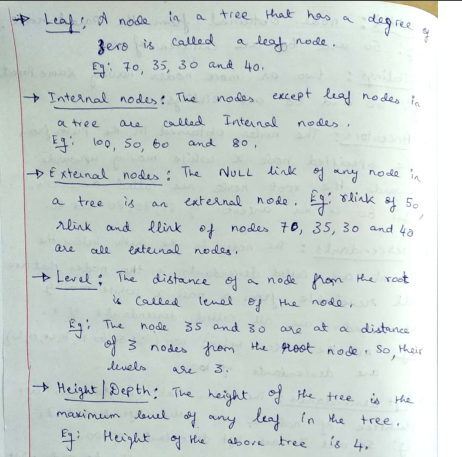 → Leaf: A node in a tree that has a degree of
zero is called a leaf node.
Eg: 70, 35, 30 and 40.
→ Internal nodes: The nodes except leaf nodes in
a tree are called Internal nodes.
Eg: 100, 50, 60 and 80.
→ External nodes: The NULL link of any node in
a tree is an external node. Eg: rlink of 50,
rlink and llink of nodes 70, 35, 30 and 40
are all external nodes.
→ Level: The distance of a node from the root
is called level of the node.
Eg: The node 35 and 30 are at a distance
of 3 nodes from the root node. So, their
levels are 3.
→ Height/Depth: The height of the tree is the
maximum level of any leaf in the tree.
Eg: Height of the above tree is 4.